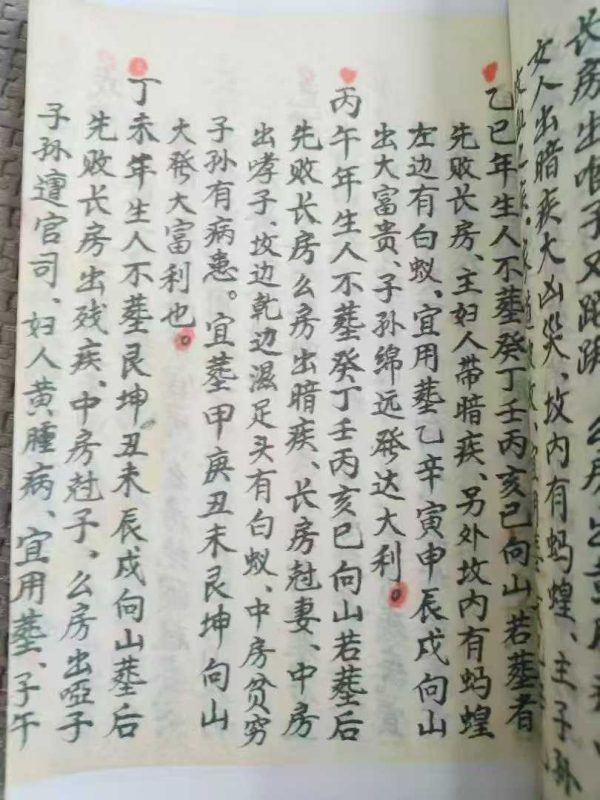 长房出
女人出暗疾大凶哭、坟内有蚂蝗、主子孙
乙巳年生人不葬癸丁壬丙亥巳向山若葬者
先败长房、主妇人带暗疾、另外坟内有蚂蝗
左边有白蚁、宜用葬乙辛寅申辰戌向山
出大富贵、子孙绵远発达大利。
丙午年生人不葬癸丁壬丙亥巳向山若葬后
先败长房么房出暗疾、长房尅妻、中房
出哮子、坟边乾边湿足头有白蚁、中房贫穷
子孙有病患。宜葬甲庚丑未艮坤向山
大発大富利也。
丁未年生人不葬艮坤丑未辰戌向山葬后
先败长房出残疾、中房尅子、么房出哑子
子孙遭官司、妇人黄腫病、宜用葬、子午